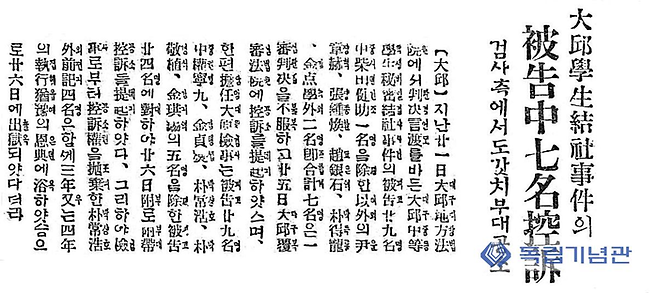 大邱學生結社事件의
被告中七名控訴
검사측에서도갓치부대공소
【大邱】지난廿一日大邱地方法
院에서判決言渡를바든大邱中等
學生秘密結社事件의被告廿九名
中柴田健助一名을除한以外의尹
章赫、張鍾煥、趙銀石、朴得龍
、金点學外二名卽合計七名은一
審判決을不服하고廿五日大邱覆
審法院에控訴를提起하얏스며、
한편擔任大崎檢事는被告廿九名
中權寧九、金貞 、朴常浩、朴
敬植、金琪 의五名을除한被告
廿四名에對하야廿六日附로附帶
控訴를提起하얏다、그리하야檢
事로부터控訴權을抛棄한朴常浩
外前記四名은함께三年又는四年
의執行猶豫의恩典에浴하얏슴으
로廿六日에出獄되얏다더라
독립기념관